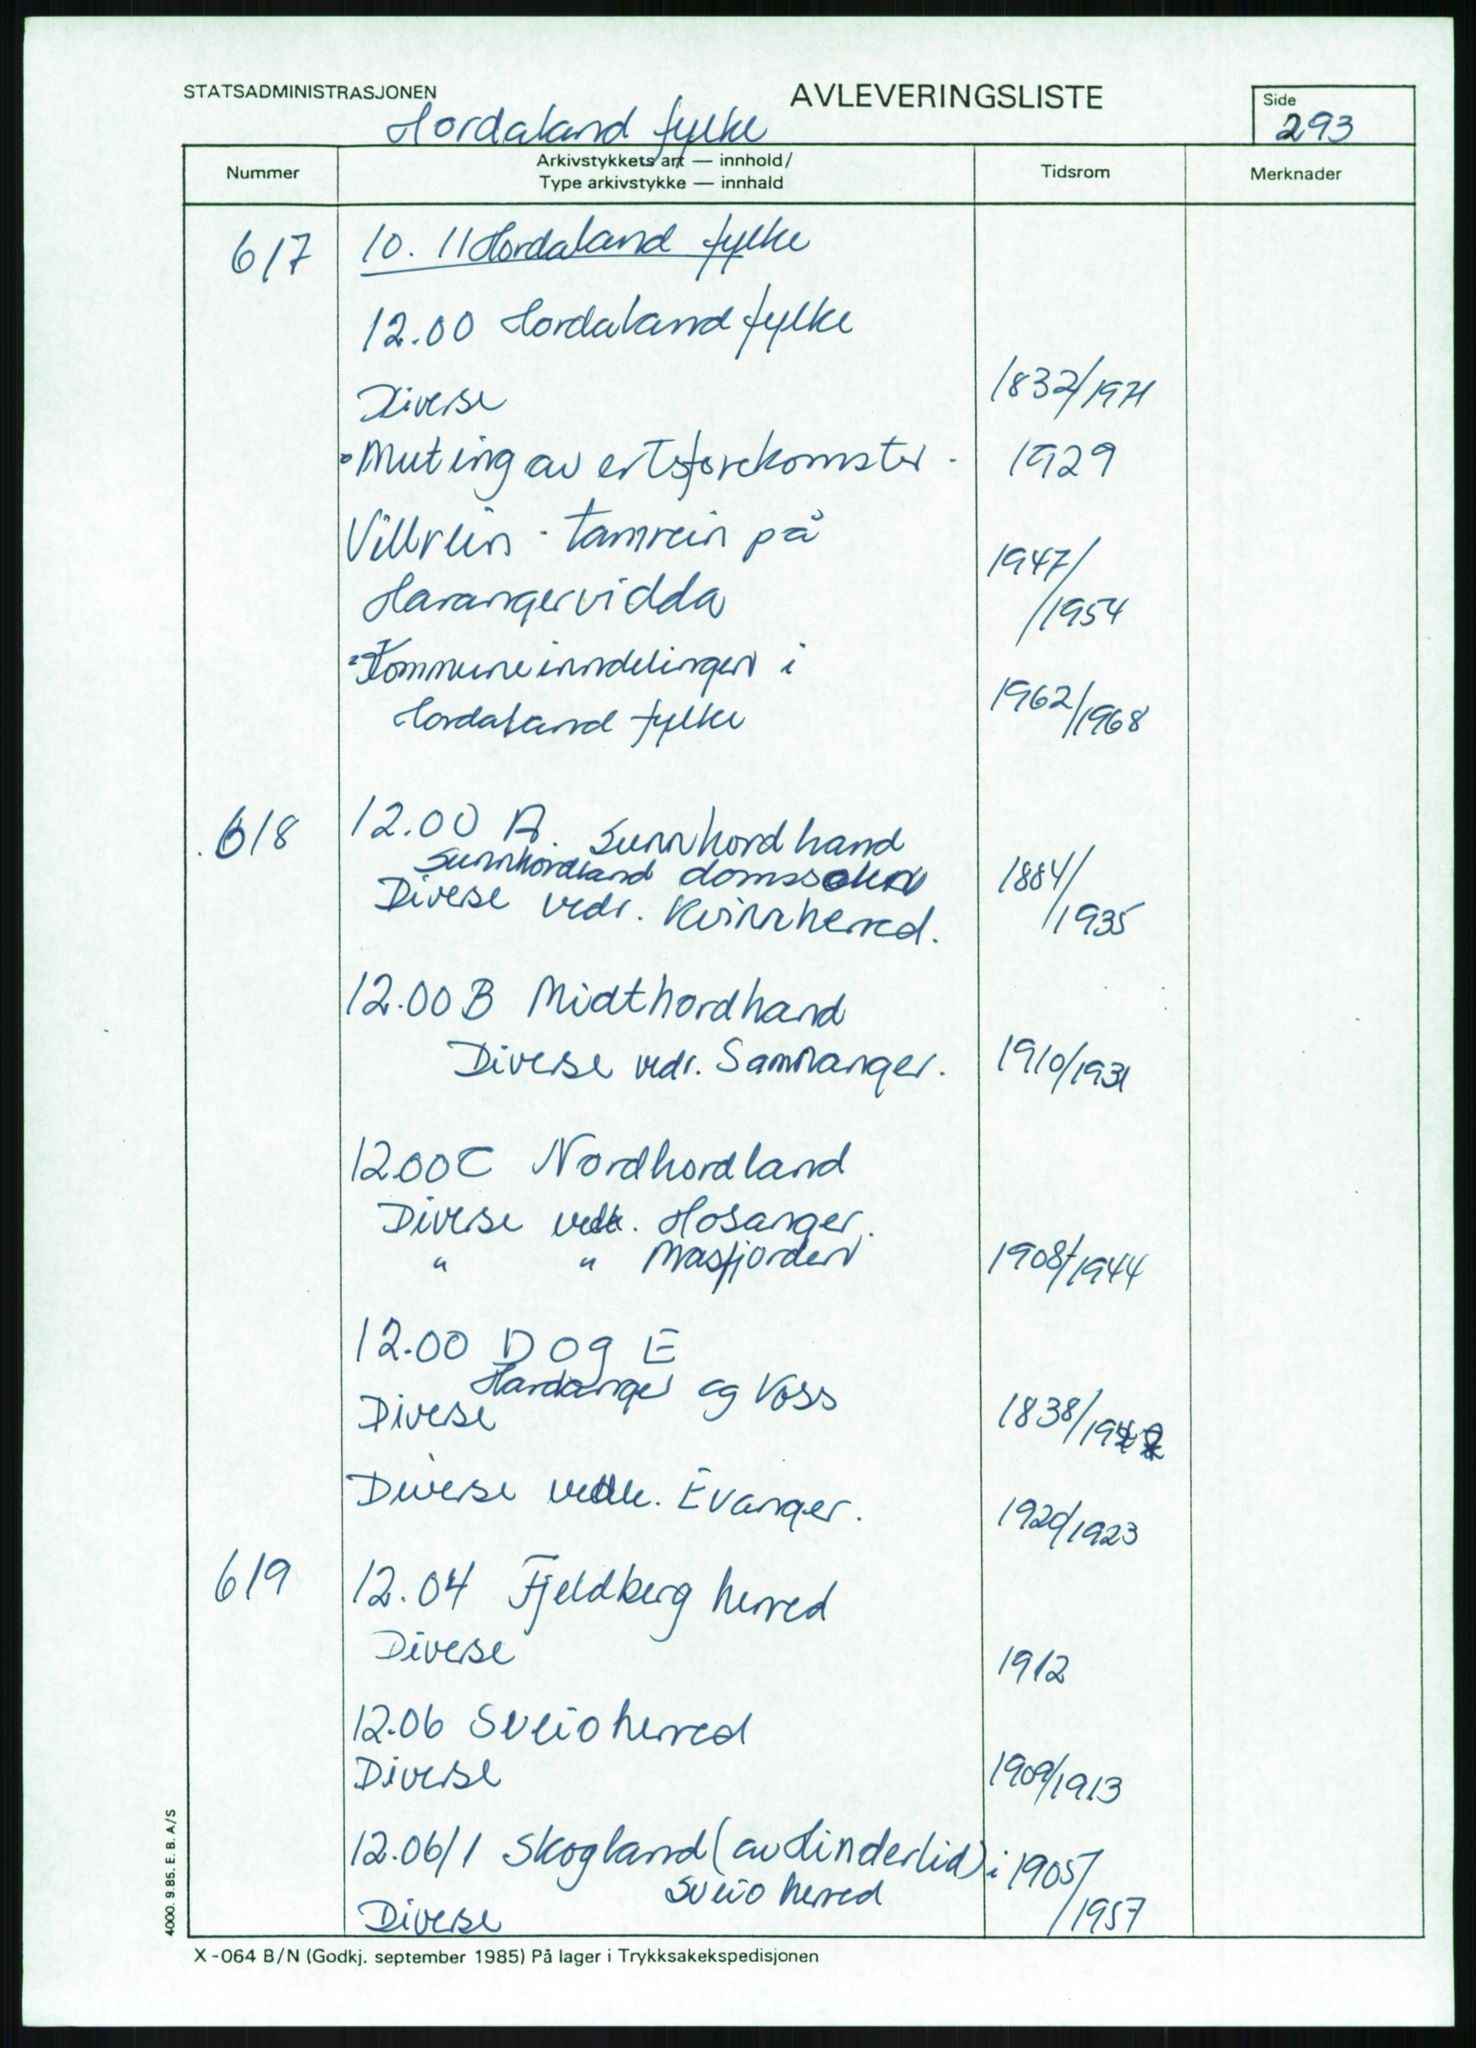 STATSADMINISTRASJONEN
AVLEVERINGSLISTE
Side
293
Hordaland fylke
Nummer
Arkivstykkets art — innhold/
Type arkivstykke — innhald
Tidsrom
Merknader
617 10. 11 Hordaland fylke
12.00 Hordaland fylke
Diverse 1832/1971
Muting av ertsforekomster - 1929
Villrein - tamrein på 1947/
Harangervidda /1954
Kommuneinndelingen i
Hordaland fylke 1962/1968
618 12.00 A. Sunnhordland
Sunnhordland domssokn 1884/
Diverse vedr. Kvinnherred. /1935
12.00 B Midthordland
Diverse vedr. Samnanger. 1910/1931
12.00 C Nordhordland
Diverse vedk. Hosanger.
" " Masfjorden 1908/1944
12.00 D og E
Hardanger og Voss
Diverse 1838/
Diverse vedk. Evanger. 1920/1923
619 12.04 Fjeldberg herred
Diverse 1912
12.06 Sveio herred
Diverse 1909/1913
12.06/1 Skogland (av Hinderlid) i 1905/
Sveio herred
Diverse /1957
X-064 B/N (Godkj. september 1985) På lager i Trykksakekspedisjonen
4000. 9.85. E. B. A/S